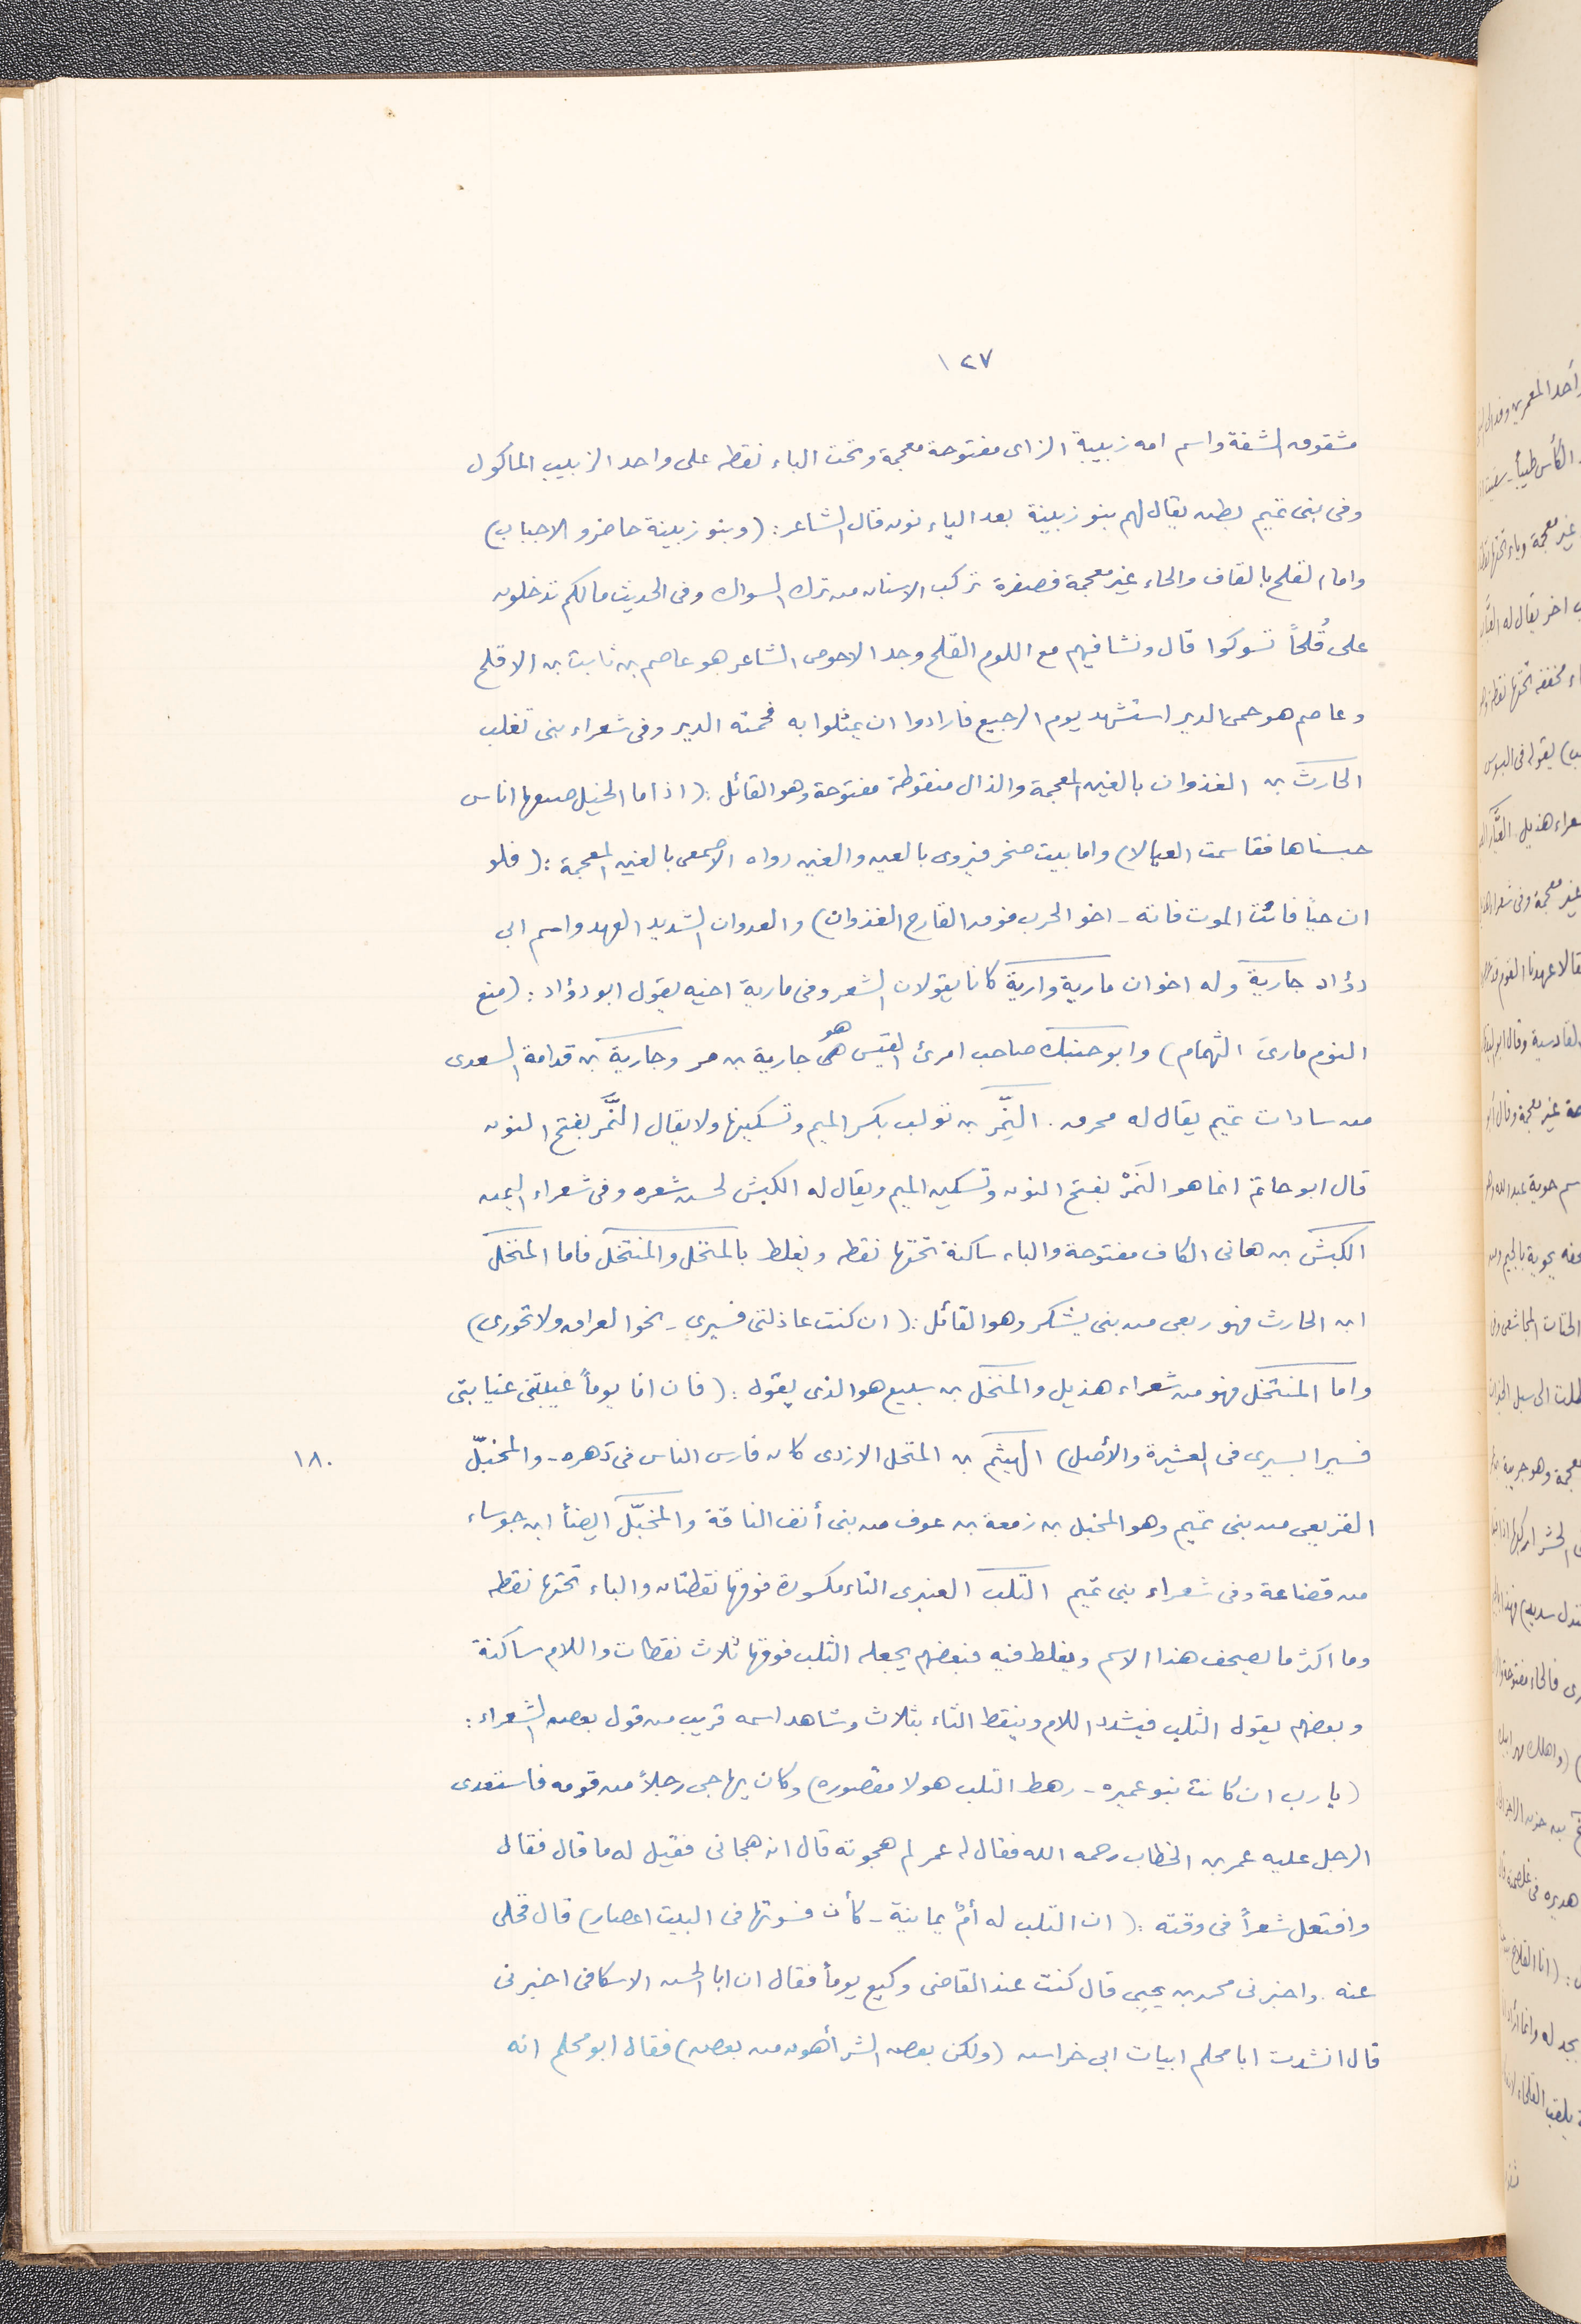 ١٢٧
مشقوق الشفة واسم امه زبيبة الزاى مفتوحة معجمة وتحت الباء نقطه على واحد الزبيب المأكول
وفى بنى تميم بطن يقال لهم بنو زبينة بعد الياء نون قال الشاعر : (وبنو زبينة حاضرو الاجباب)
واما القلح بالقاف والحاء غير معجمة فصفرة تركب الاسنان من ترك السواك وفى الحديث مالكم تدخلون
على قُلحاً تسوكوا قال ونشا فيهم مع اللوم القلح وجد الاحوص الشاعر هو عاصم بن ثابت بن الاقلح
وعاصم هو حمى الدبر استشهد يوم الرجيع فارادوا ان يمثلوا به فحمته الدبر وفى شعراء بنى تغلب
الحارث بن الغذوان بالغين المعجمة والذال منقوطة مفتوحة وهو القائل : ( اذا ما الخيل ضيعها اناس
حبسناها فقاسمت العيالا) واما بيت صخر فيروى بالعين والغين رواه الاصمعى بالغين المعجمة : ( فلو
ان حياً فائت الموت فاته - اخو الحرب فوق القارح الغذوان) والعدوان الشديد العهد واسم ابى
دؤاد جارية وله اخوان مارية وارية كانا يقولان الشعر وفى مارية اخيه يقول ابو دؤاد : (منع
النوم مارىَ التهمام) وابو حنبك صاحب امرئ القيس هو جارية بن مر وجارية بن قدامة السعدى
من سادات تميم يقال له محرق . النَّمِر بن تولب بكسر الميم وتسكينها ولا يقال النَّمَر بفتح النون
قال ابو حاتم انما هو النَمْر بفتح النون وتسكين الميم ويقال له الكيش لحسن شعره وفى شعراء اليمن
الكبش بن هانى الكاف مفتوحة والباء ساكنة تحتها نقطه ويغلط بالمنخل والمتنخل فاما المنخل
ابن الحارث فهو ربعى من بنى يشكر وهو القائل : ( ان كنت عاذلتى فسيرى - نحو العراق ولا تحورى)
واما المتنخل فهو من شعراء هذيل والمنخل بن سبيع هو الذى يقول : ( فان انا يوماً غيبتنى غيابتى
فسيرا بسيرى فى العشيرة والأصل) الهيثم بن المنخل الازدى كان فارس الناس فى دهره - والمخبّل
١٨٠
القريعى من بنى تميم وهو المخبل بن زمعة بن عوف من بنى أنف الناقة والمخبّل ايضاً ابن جوساء
من قضاعة وفى شعراء بنى تميم التلب العنبرى التاء مكسورة فوقها نقطتان والباء تحتها نقطه
وما اكثر ما يصحف هذا الاسم ويغلط فيه فبعضهم يجعله الثلب فوقها ثلاث نقطات واللام ساكنة
وبعضهم يقول الثلب فيشدد اللام وينقط الثاء بثلاث وشاهد اسمه قريب من قول بعض الشعراء :
(يا رب ان كانت بنو عميره - رهط التلب هولا مقصوره) وكان يهاجى رجلاً من قومه فاستعدى
الرجل عليه عمر بن الخطاب رحمه الله فقال له عمر لم هجوته قال انه هجانى فقيل له ما قال فقال
وافتعل شعراً فى وقته : ( ان التلب له أمٌ يمانية - كأن فسوتها فى البيت اعصار) قال فخلى
عنه . واخبرنى محمد بن يحيى قال كنت عند القاضى وكيع يوماً فقال ان ابا الحسن الاسكافى اخبرنى
قال انشدت ابا محلم ابيات ابى خراش (ولكن بعض الشر أهون من بعض) فقال ابو محلم انه